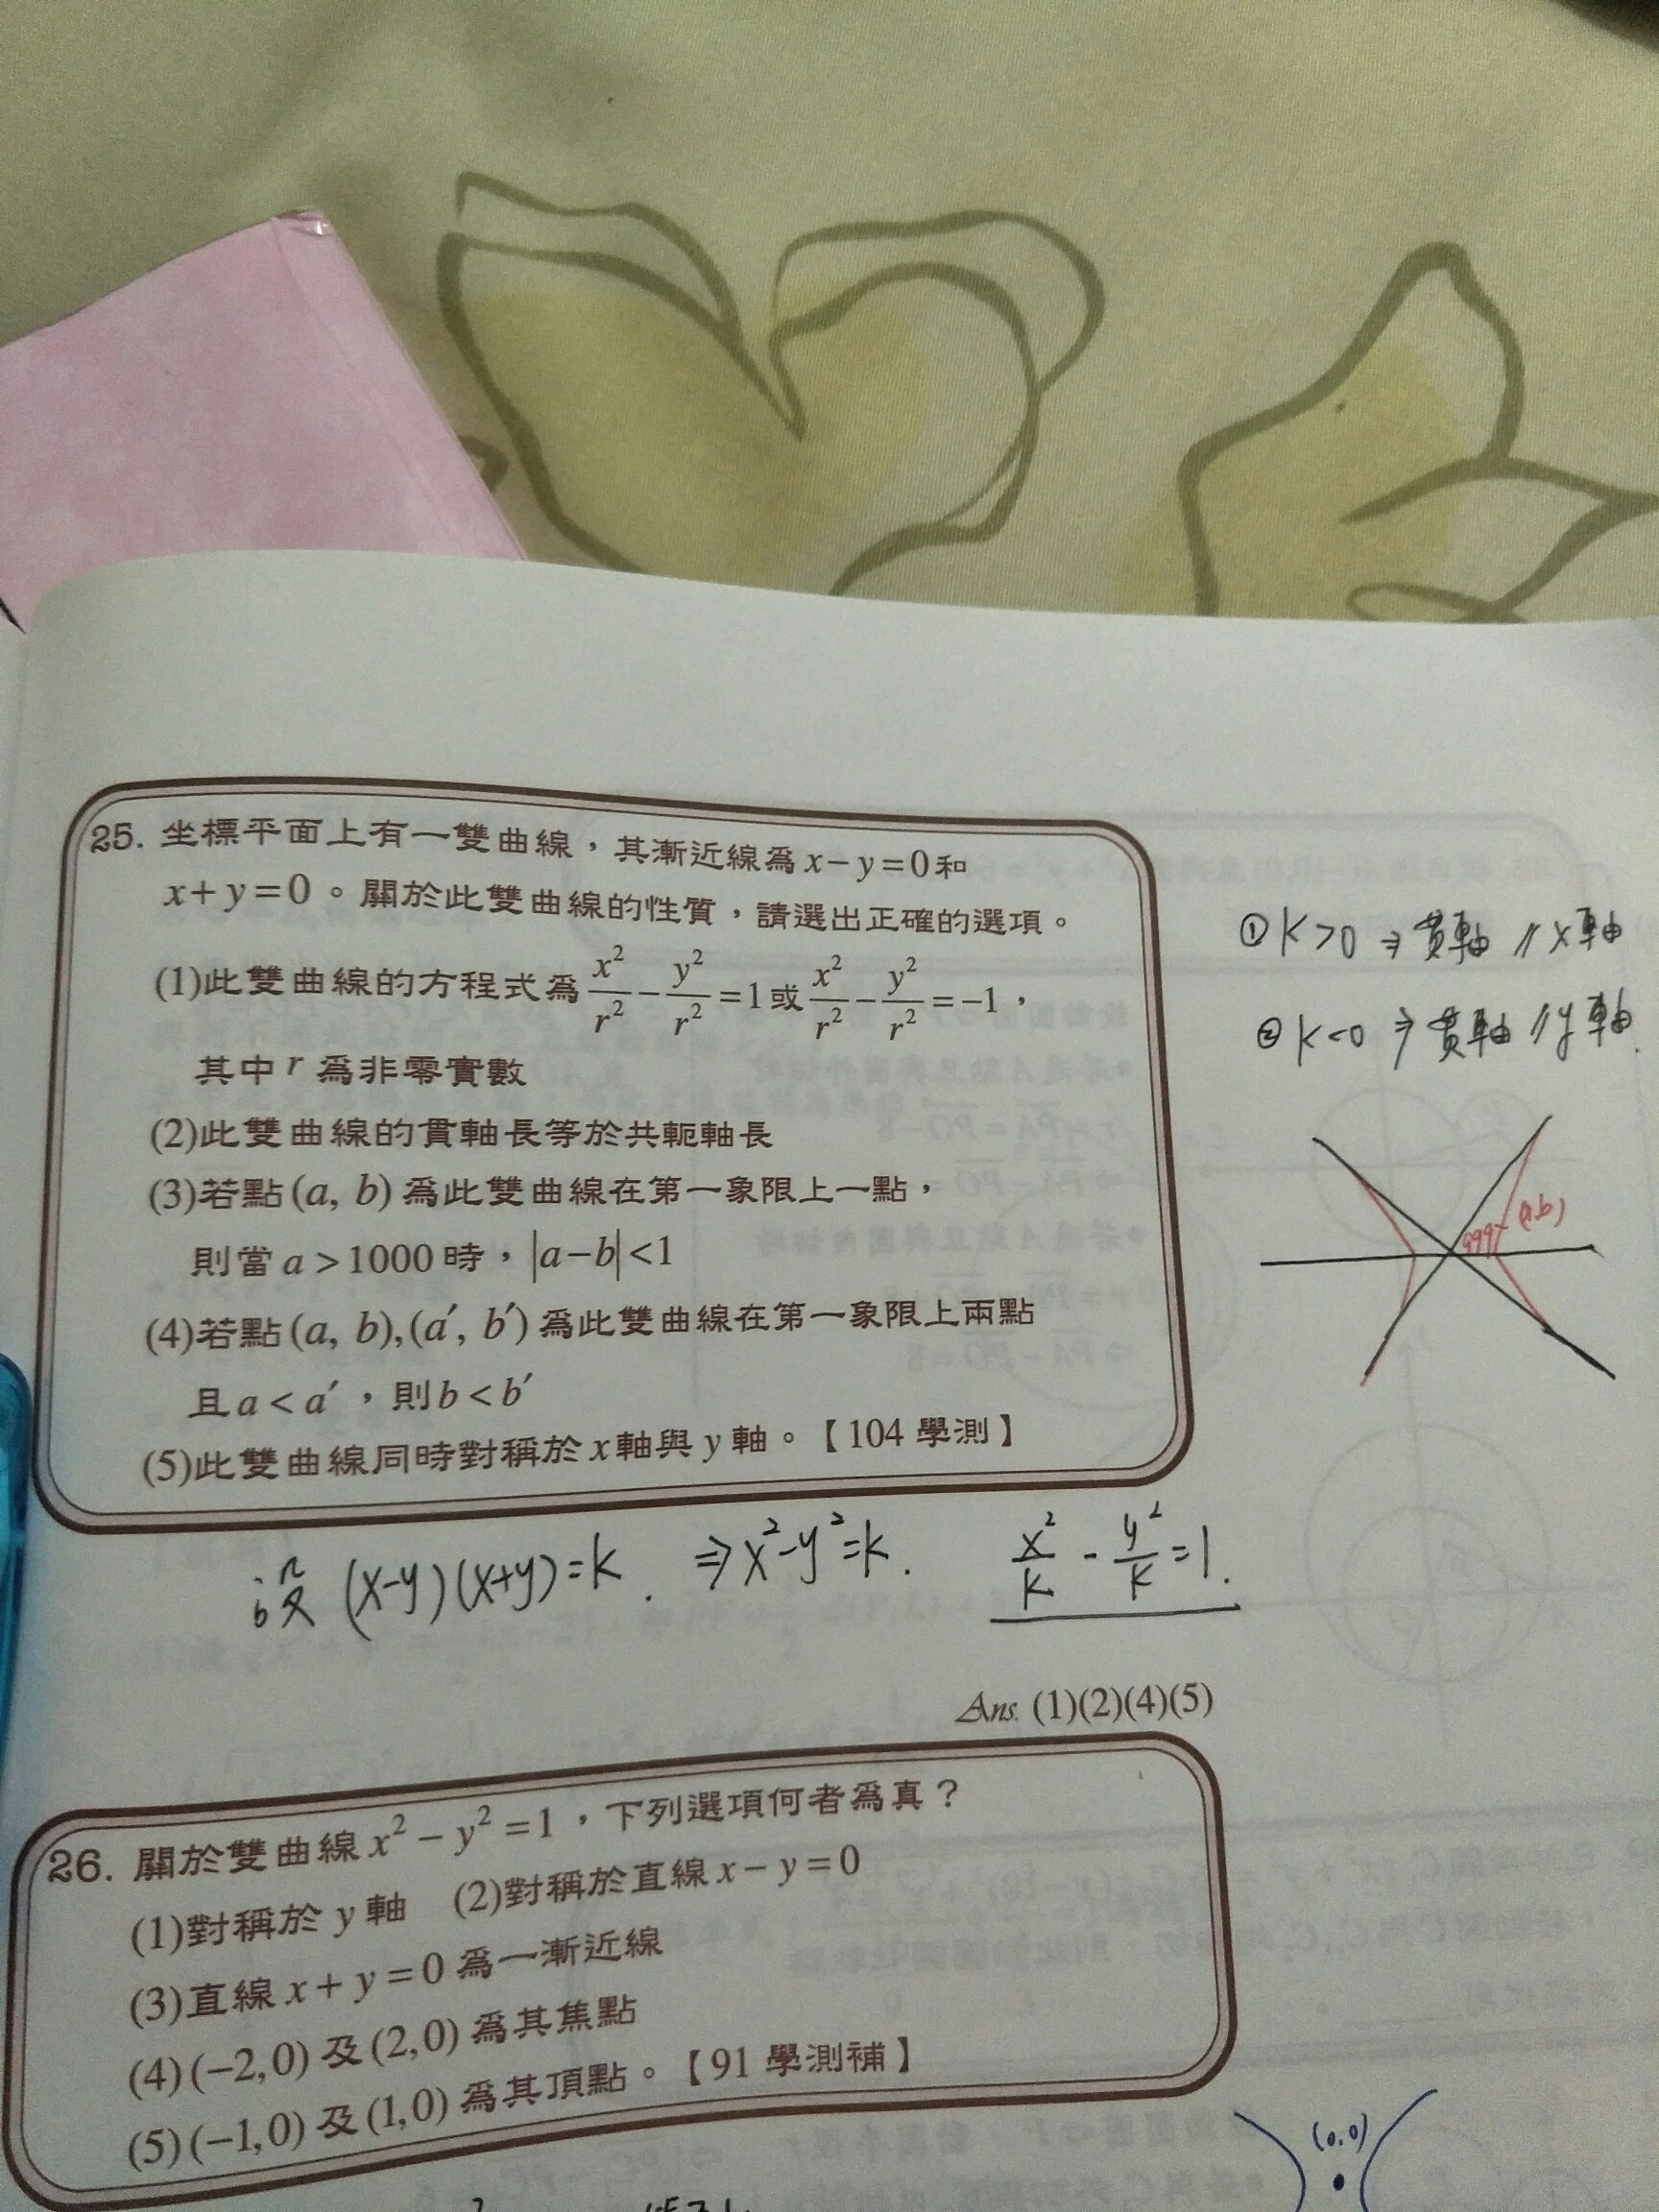 25. 坐標平面上有一雙曲線，其漸近線為 x−y=0 和
x+y=0。關於此雙曲線的性質，請選出正確的選項。
(1)此雙曲線的方程式為 x²/r² − y²/r² = 1 或 x²/r² − y²/r² = −1，
其中 r 為非零實數
(2)此雙曲線的貫軸長等於共軛軸長
(3)若點(a, b)為此雙曲線在第一象限上一點，
則當 a>1000 時，|a−b|<1
(4)若點(a, b),(a′, b′)為此雙曲線在第一象限上兩點
且 a<a′，則 b<b′
(5)此雙曲線同時對稱於 x 軸與 y 軸。【104 學測】
① K>0 ⇒ 貫軸 // x軸
② K<0 ⇒ 貫軸 // y軸.
999
(a,b)
設 (x-y)(x+y)=k. ⇒ x²-y²=k. x²/k - y²/k = 1.
Ans. (1)(2)(4)(5)
26. 關於雙曲線 x² − y² = 1，下列選項何者為真？
(1)對稱於 y 軸 (2)對稱於直線 x−y=0
(3)直線 x+y=0 為一漸近線
(4)(−2,0)及(2,0)為其焦點
(5)(−1,0)及(1,0)為其頂點。【91 學測補】
(0,0)